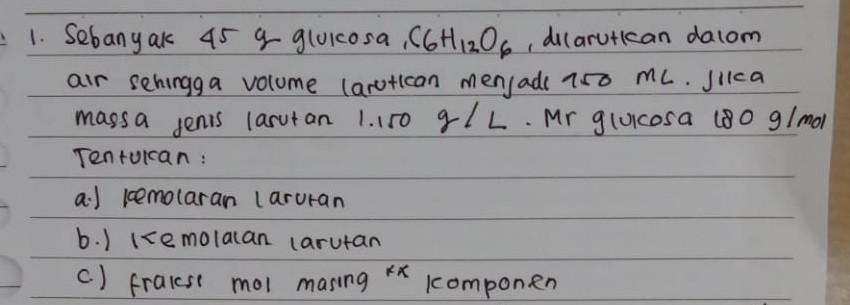 1. Sebanyak 45 g glukosa, C6H12O6, dilarutkan dalam
air sehingga volume larutkan menjadi 750 ML. Jika
massa jenis larutan 1.150 g/L. Mr glukosa 180 g/mol
Tentukan:
a.) kemolaran larutan
b.) Kemolalan larutan
c) fraksi mol masing ** komponen